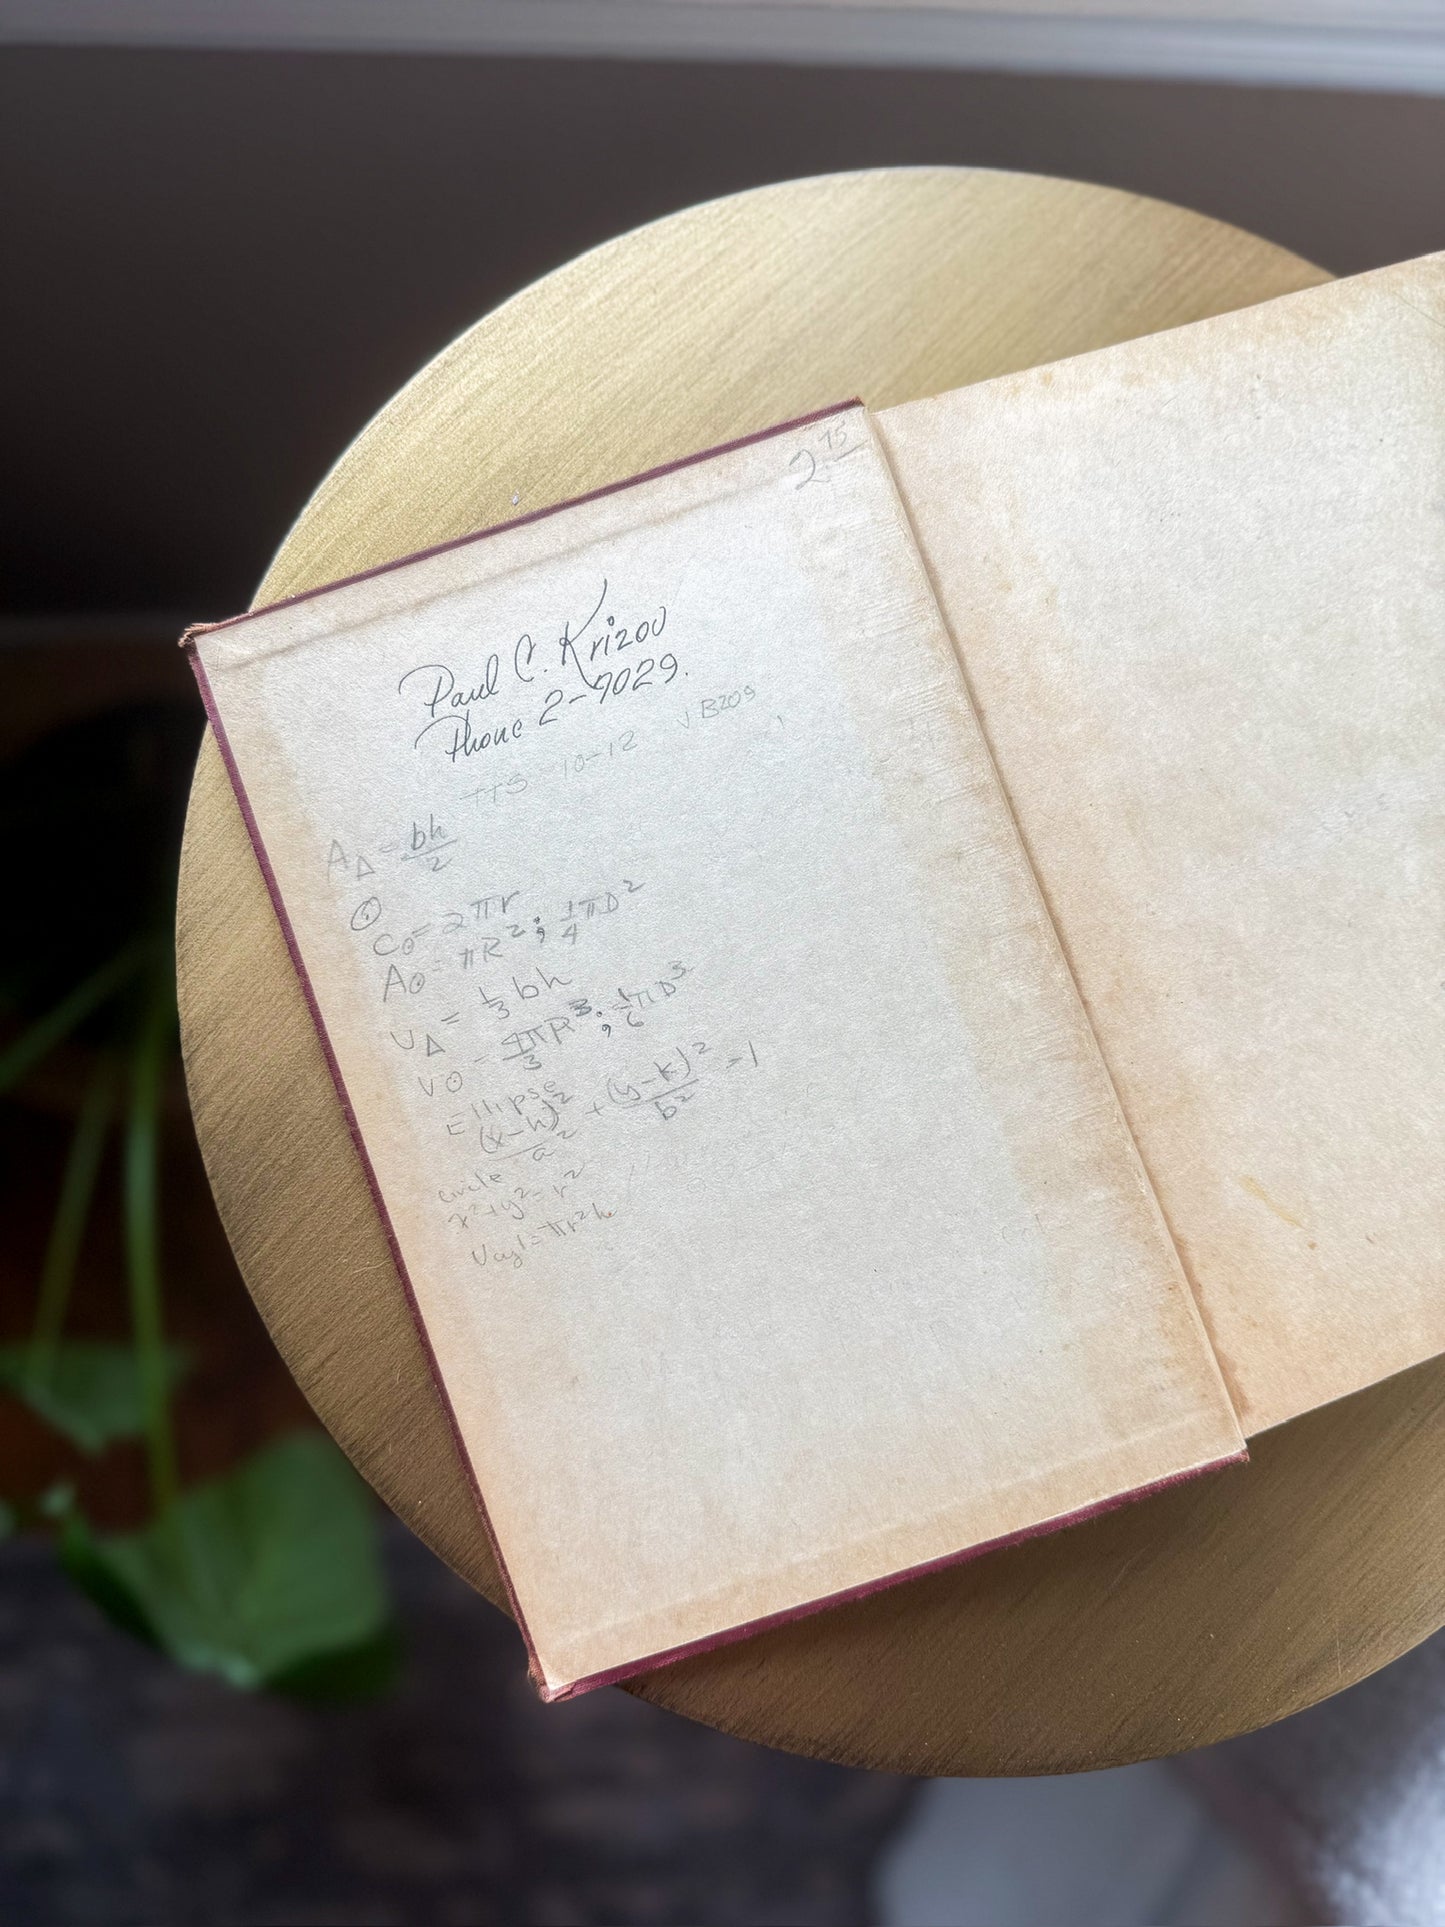 2.75
Paul C. Krizov
Phone 2-9029.
TTS 10-12 √B209
A△ = bh/2
⊙
C⊙ = 2πr
A⊙ = πR²; 1/4 πD²
V△ = 1/3 bh
V⊙ = 4πR³/3; 1/6 πD³
Ellipse
(x-h)²/a² + (y-k)²/b² = 1
circle
x²+y²=r²
Vcyl = πr²h